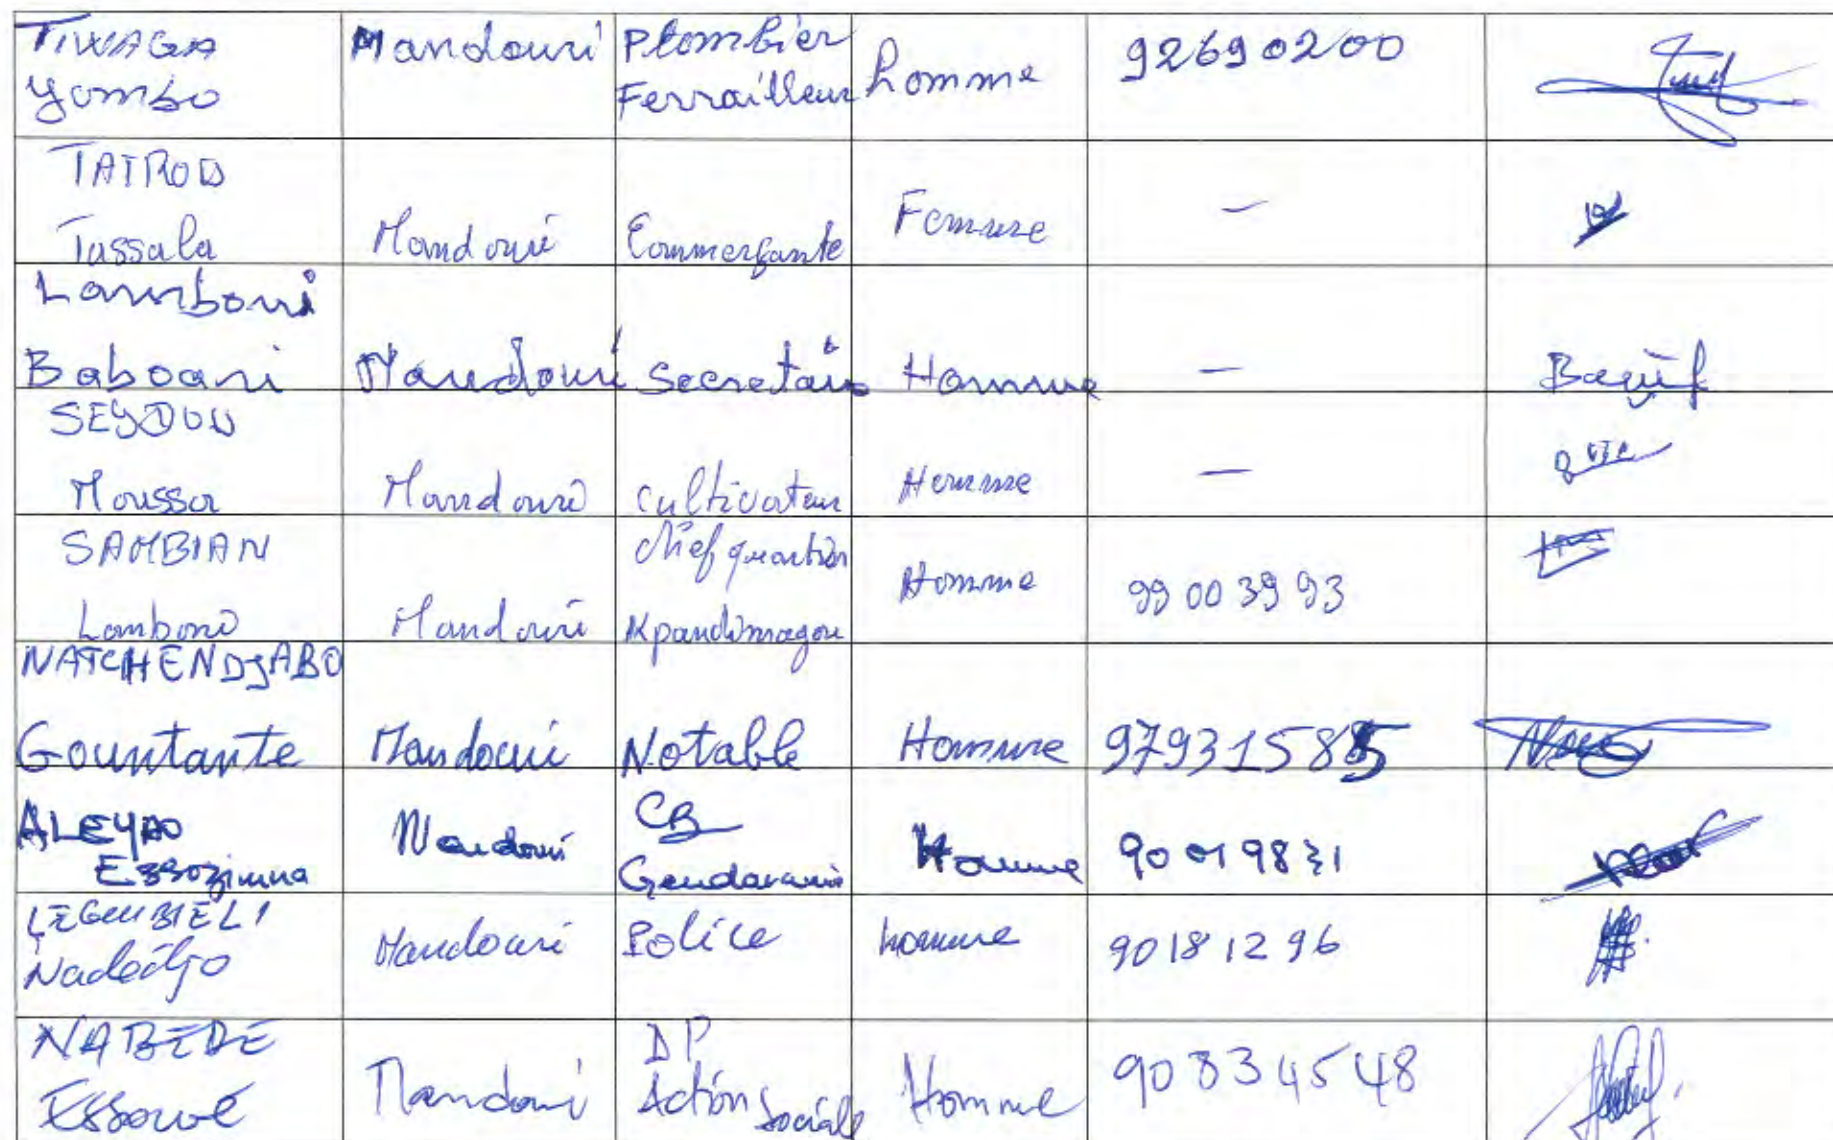 TIWAGA Mandouri Plombier
Yombo Ferrailleur homme 92690200
TATROD
Tassala Mandouri Commerçante Femme —
Lamboni
Baboani Mandouri Secretaire Homme —
SEYDOU
Moussa Mandouri Cultivateur Homme —
SAMBIAN Chef quartier
Lamboni Mandouri Kpandimagou Homme 99 00 39 93
NATCHENDJABO
Gountante Mandouri Notable Homme 97931585
ALEYAO Mandouri CB
Essozimna Gendarmerie Homme 90
Nadédjo Mandouri Police homme 90 18 12 96
NABEDE DP
Essowè Mandouri Action Sociale Homme 90834548